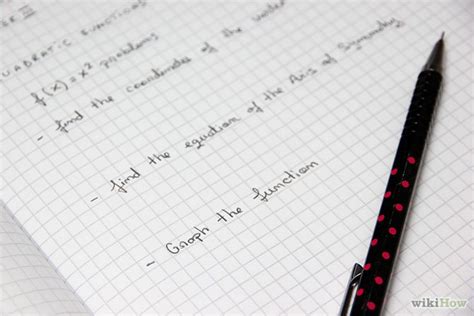 QUADRATIC FUNCTIONS
f(x) = x² problems
- find the coordinates of the vertex
- find the equation of the Axis of Symmetry
- Graph the function
wikiHow